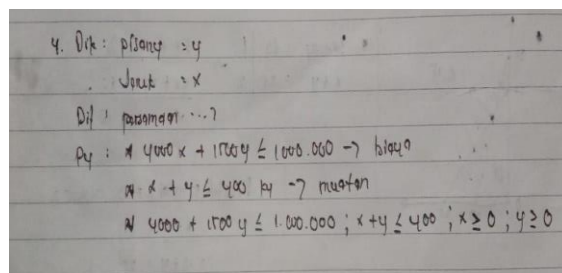 4. Dik : pisang = y
Jeruk = x
Dit : persamaan ...?
Py : * 4000 x + 1500 y ≤ 1000.000 → biaya
* x + y ≤ 400 kg → muatan
* 4000 + 1500 y ≤ 1.000.000 ; x + y ≤ 400 ; x ≥ 0 ; y ≥ 0